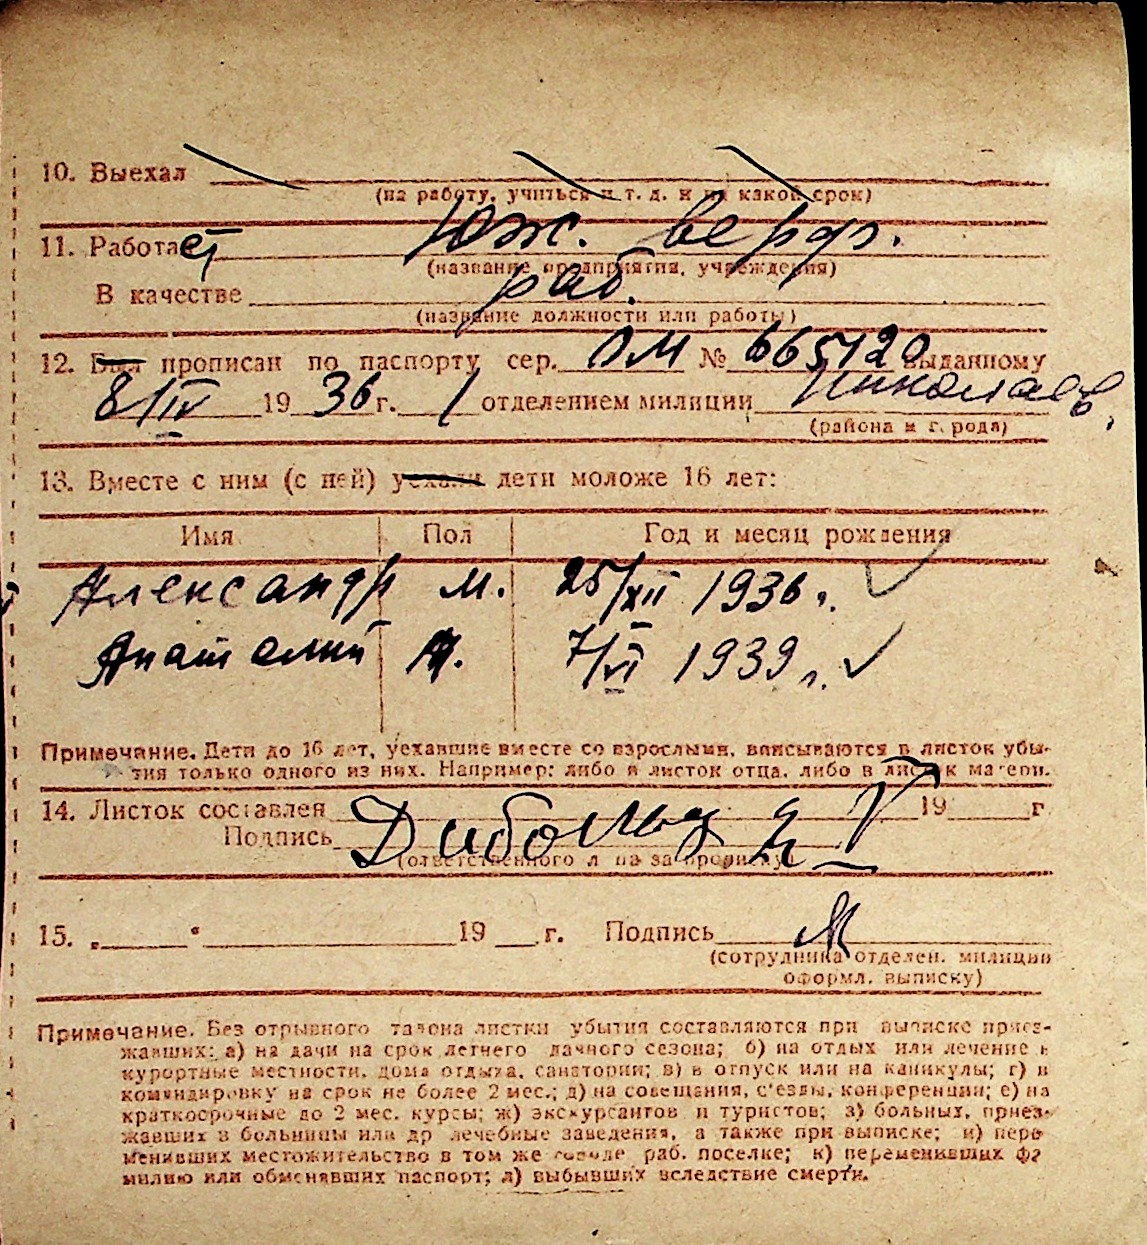 10. Выехал
(на работу, учиться и т. д. и на какой срок)
11. Работает Юж. верфь.
(название предприятия, учреждения)
В качестве раб.
(название должности или работы)
12. Был прописан по паспорту сер. ОМ № 665120 выданному
8/IV 1936 г. 1 отделением милиции Николаев,
(района и города)
13. Вместе с ним (с ней) уехали дети моложе 16 лет:
Имя Пол Год и месяц рождения
Александр м. 25/XII 1936 г.
Анатолий м. 7/VI 1939 г.
Примечание. Дети до 16 лет, уехавшие вместе со взрослыми, вписываются в листок убы-
тия только одного из них. Например: либо в листок отца, либо в листок матери.
14. Листок составлен 19 г
Подпись
(ответственного лица за прописку)
15. „ “ 19 г. Подпись
(сотрудника отделен. милиции
оформл. выписку)
Примечание. Без отрывного талона листки убытия составляются при выписке приез-
жавших: а) на дачи на срок летнего дачного сезона; б) на отдых или лечение в
курортные местности, дома отдыха, санатории; в) в отпуск или на каникулы; г) в
командировку на срок не более 2 мес.; д) на совещания, с'езды, конференции; е) на
краткосрочные до 2 мес. курсы; ж) экскурсантов и туристов; з) больных, приез-
жавших в больницы или др лечебные заведения, а также при выписке; и) пере
менивших местожительство в том же городе раб. поселке; к) переменивших фа
милию или обменявших паспорт; л) выбывших вследствие смерти.